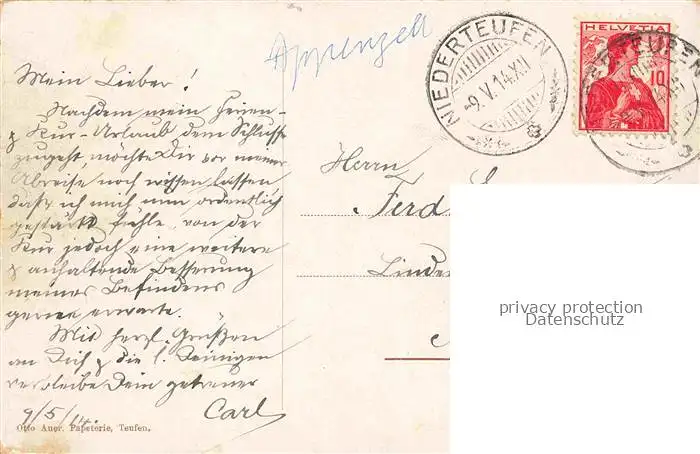 Appenzell
Mein Lieber!
Nachdem mein Ferien-
& Kur-Urlaub dem Schlusse
zugeht möchte Dir vor meiner
Abreise noch wissen lassen
daß ich mich nun ordentlich
gestärkt fühle, von der
Kur jedoch eine weitere
& anhaltende Besserung
meines Befindens
gerne erwarte.
Mit herzl. Grüßen
an Dich & die l. Deinigen
verbleibe Dein getreuer
Carl
9/5/14.
Otto Auer. Papeterie, Teufen.
NIEDERTEUFEN
-9.V.14.XII
HELVETIA
10
Herrn
Ferd
Linde
privacy protection
Datenschutz